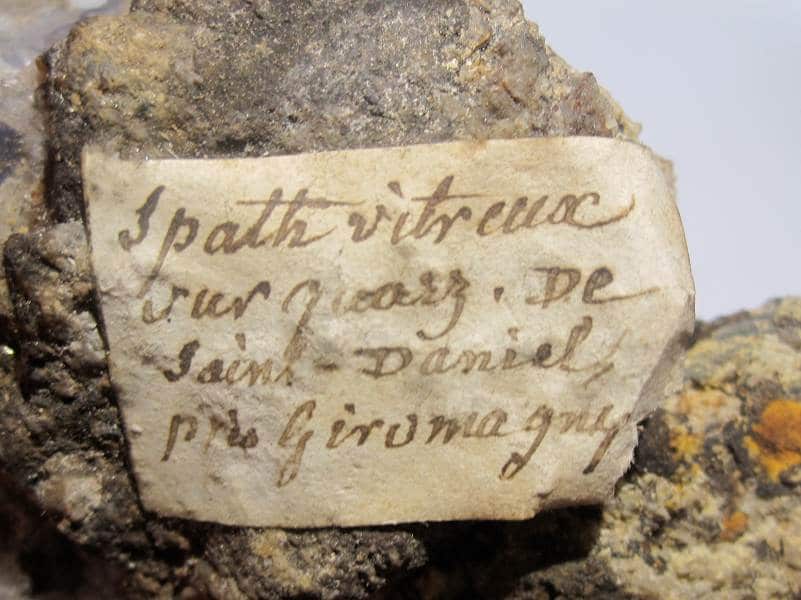 Spath vitreux
sur quarz. De
Saint-Daniel,
près Giromagny